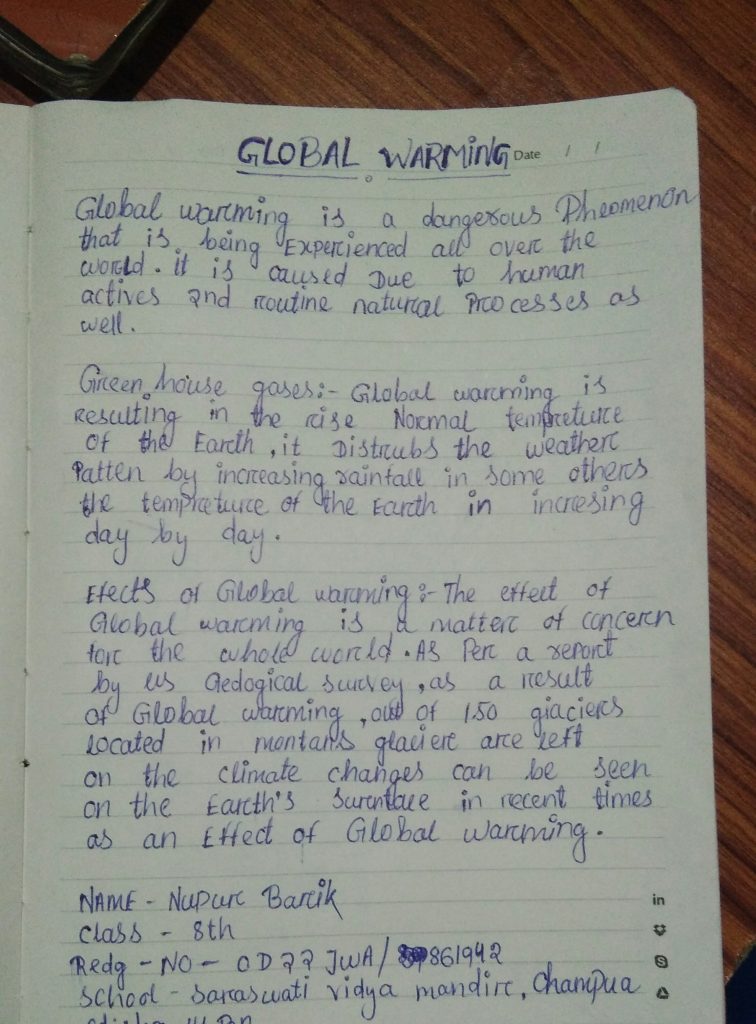 GLOBAL WARMING Date / /
Global warming is a dangerous Pheomenon
that is being Experienced all over the
world. it is caused Due to human
actives and routine natural Processes as
well.
Green house gases:- Global warming is
Resulting in the rise Normal tempreture
Of the Earth, it Distrubs the weather
Patten by increasing rainfall in some others
the tempreture of the Earth in incresing
day by day.
Efects of Global warming :- The effect of
Global warming is a matter of concern
for the whole world. As Per a report
by us Gedogical survey, as a result
of Global warming, out of 150 glaciers
Located in montans glacier are left
on the climate changes can be seen
on the Earth's in recent times
as an Effect of Global Warming.
NAME - Nupur Barik
Class - 8th
Redg - NO - OD 22 JWA/ 861942
School - Saraswati vidya mandir, Champua
in